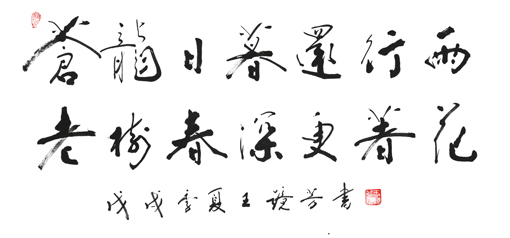 蒼龍日暮還行雨
老樹春深更著花
戊戌季夏王書